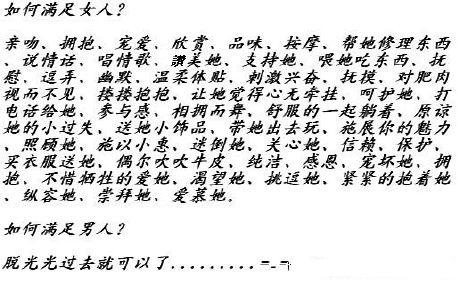 如何满足女人？
亲吻、拥抱、宠爱、欣赏、品味、按摩、帮她修理东西
、说情话、唱情歌、讚美她、支持她、喂她吃东西、抚
慰、逗弄、幽默、温柔体贴、刺激兴奋、抚摸、对肥肉
视而不见、搂搂抱抱、让她觉得心无牵挂、呵护她、打
电话给她、参与感、相拥而舞、舒服的一起躺着、原谅
她的小过失、送她小饰品、带她出去玩、施展你的魅力
、照顾她、施以小惠、迷倒她、关心她、信赖、保护、
买衣服送她、偶尔吹吹牛皮、纯洁、感恩、宠坏她、拥
抱、不惜牺牲的爱她、渴望她、挑逗她、紧紧的抱着她
、纵容她、崇拜她、爱慕她。
如何满足男人？
脱光光过去就可以了.........=.=